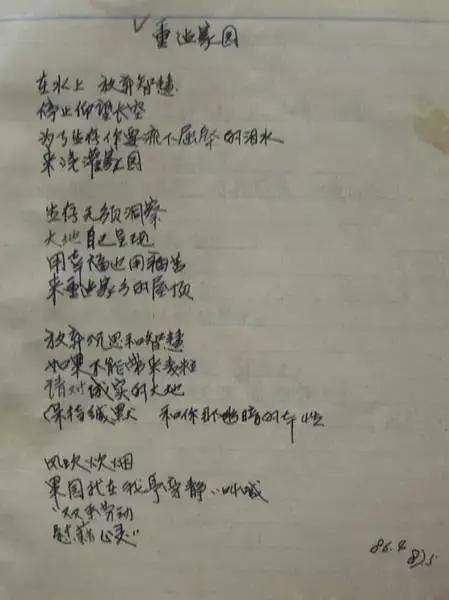 重建家园
在水上 放弃智慧
停止仰望长空
为了生存你要流下屈辱的泪水
来浇灌家园
生存无须洞察
大地自己呈现
用幸福也用痛苦
来重建家乡的屋顶
放弃沉思和智慧
如果不能带来麦粒
请对诚实的大地
保持缄默 和你那幽暗的本性
风吹炊烟
果园就在我身旁静静叫喊
“双手劳动
慰藉心灵”